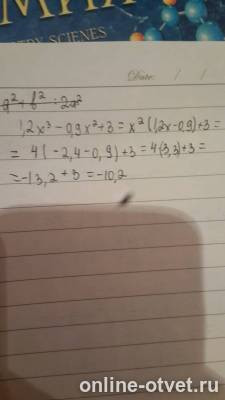 ERY SCIENES
Date: / /
1,2x³ - 0,9x² + 3 = x² (1,2x - 0,9) + 3 =
= 4 ( -2,4 - 0,9) + 3 = 4(3,3) + 3 =
= -13,2 + 3 = -10,2
online-otvet.ru